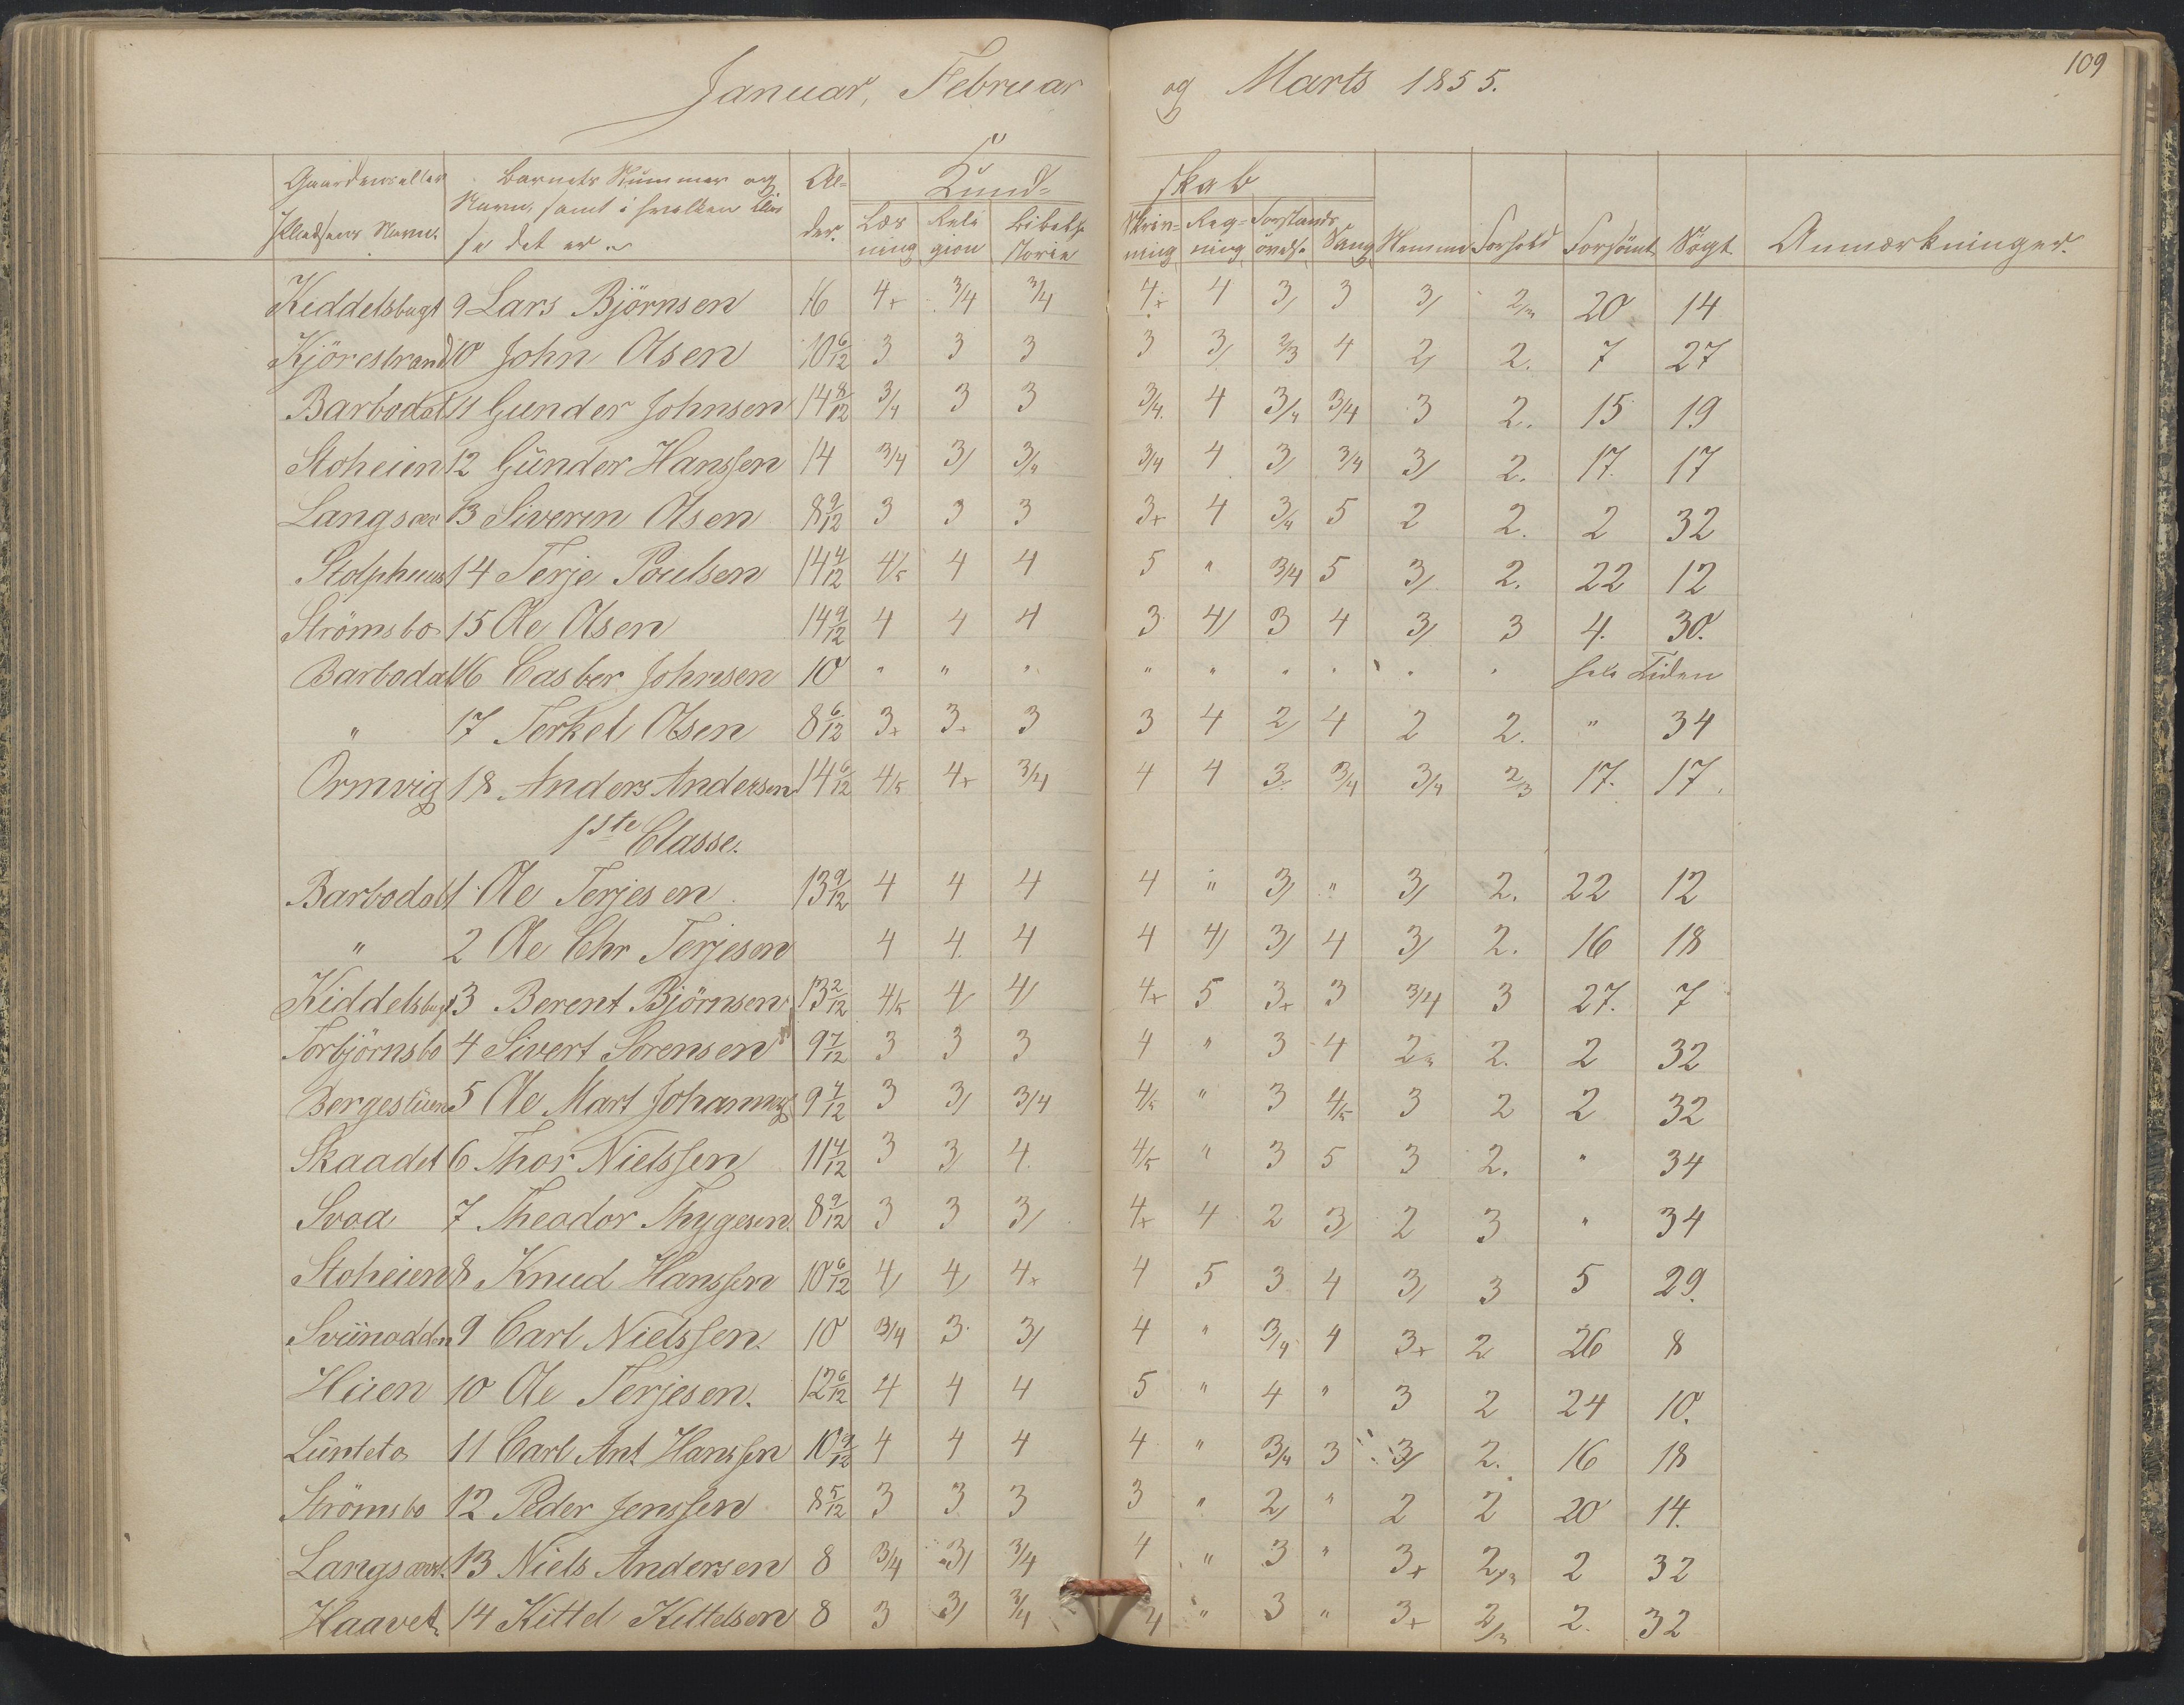 109
Januar, Februar og Marts 1855.
Gaardens eller Pladsens Navn. | Barnets Nummer og Navn, samt i hvilken Classe det er | Alder. | Kundskab | Nemme | Forhold | Forsömt | Sögt | Anmærkninger.
Læsning | Religion | Bibelhistorie | Skrivning | Regning | Forstandsövelse | Sang
Kiddelsbugt 9 Lars Björnsen 16 4+ 3/4 3/4 4+ 4 3/ 3 3/ 2/3 20 14
Kjörestrand 10 John Olsen 10 6/12 3 3 3 3 3/ 2/3 4 2/ 2. 7 27
Barbodal 11 Gunder Johnsen 14 8/12 3/4 3 3 3/4. 4 3/4 3/4 3 2. 15 19
Stoheien 12 Günder Hanssen 14 3/4 3/ 3/4 3/4 4 3/ 3/4 3/ 2. 17. 17
Langsæ 13 Siveren Olsen 8 9/12 3 3 3 3+ 4 3/4 5 2 2. 2 32
Stolphuus 14 Terje Poulsen 14 4/12 4/5 4 4 5 " 3/4 5 3/ 2. 22 12
Strömsbo 15 Ole Olsen 14 9/12 4 4 4 3 4/ 3 4 3/ 3 4. 30.
Barbodal 16 Casber Johnsen 10 " " " " " " " " " hele Tiden
" 17 Terkel Olsen 8 6/12 3+ 3+ 3 3 4 2/ 4 2 2. " 34
Ormvig 18 Anders Andersen 14 6/12 4/5 4+ 3/4 4 4 3/. 3/4 3/4 2/3 17. 17.
1ste Classe.
Barbodal 1 Ole Terjesen 13 9/12 4 4 4 4 " 3/ " 3/ 2. 22 12
" 2 Ole Chr Terjesen 4 4. 4 4 4/ 3/ 4 3/ 2. 16 18
Kiddelsbugt 3 Berent Björnsen 13 2/12 4/5 4/ 4/ 4+ 5 3+ 3 3/4 3 27. 7
Torbjörnsbo 4 Sivert Sorensen 9 7/12 3 3 3 4 " 3 4 2/3 2. 2 32
Bergestüen 5 Ole Mart Johannes 9 4/12 3 3/ 3/4 4/5 " 3 4/5 3 2 2 32
Skaadet 6 Thor Nielssen 11 4/12 3 3/ 4. 4/5 " 3 5 3 2. " 34
Svoa 7 Theodor Thygesen. 8 9/12 3 3 3/ 4+ 4 2 3/ 2 3 " 34
Stoheien 8 Knud Hanssen 10 6/12 4/ 4/ 4+ 4 5 3 4 3/ 3 5 29.
Sviinodden 9 Carl Nielssen. 10 3/4 3 3/ 4 " 3/4 4 3+ 2 26 8
Heien 10 Ole Terjesen. 12 6/12 4 4 4 5 " 4 " 3 2 24 10.
Lünteto 11 Carl Ant Hanssen 10 9/12 4 4 4 4 " 3/4 3 3/ 2. 16 18
Strömsbo 12 Peder Jenssen 8 5/12 3 3 3 3 " 2/ " 2 2 20 14.
13 Niels Andersen 8 3/4 3/ 3/4 4 " 3 " 3+ 2/3 2 32
Haavet. 14 Kittel Kittelsen 8 3 3/ 3/4 4 " 3 " 3+ 2/3 2. 32